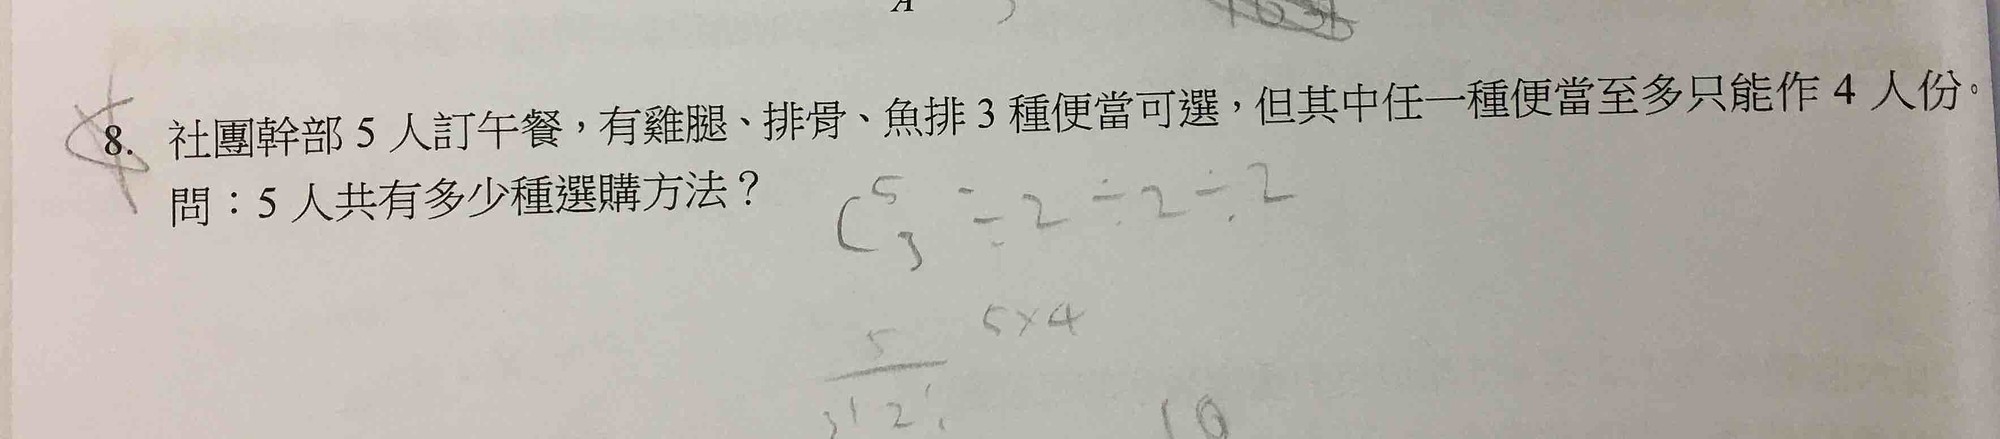 A
8. 社團幹部 5 人訂午餐，有雞腿、排骨、魚排 3 種便當可選，但其中任一種便當至多只能作 4 人份。
問：5 人共有多少種選購方法？
C 5 3 ÷2÷2÷2
5 5×4
3! 2! 10